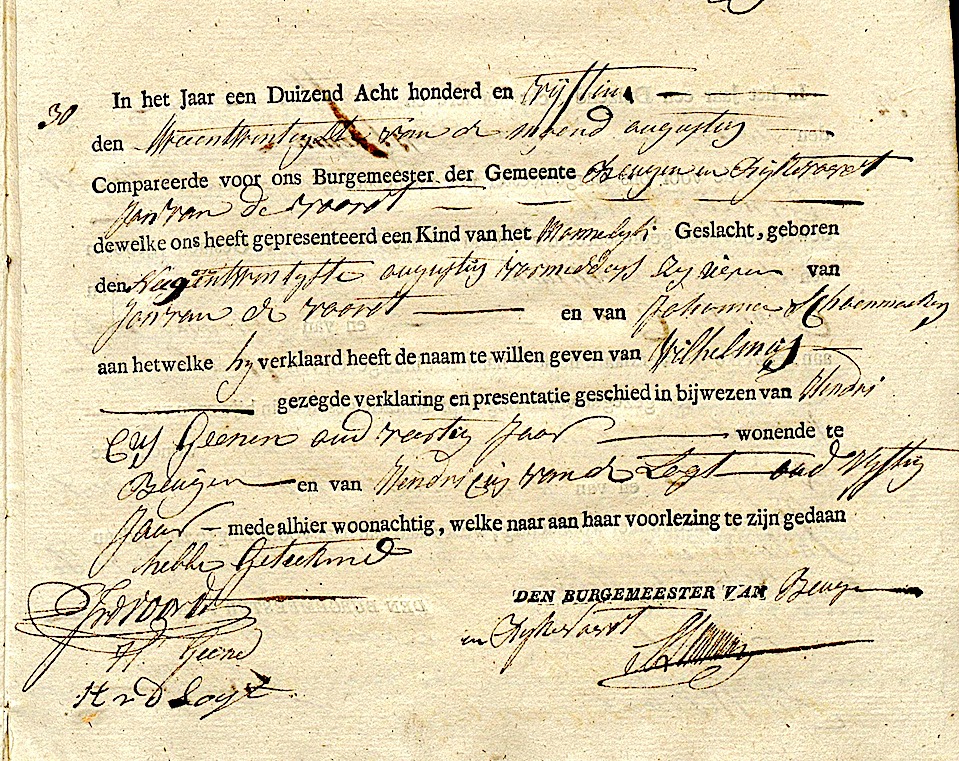 30
In het Jaar een Duizend Acht honderd en vijftien
den tweentwentigste van de maand augustus
Compareerde voor ons Burgemeester der Gemeente Beugen en Rijkevoort
Jan van de voordt
dewelke ons heeft gepresenteerd een Kind van het Mannelyk Geslacht, geboren
den augustus voormiddags zes uren van
Jan van de voordt en van Johanna Schoenmakers
aan hetwelke hy verklaard heeft de naam te willen geven van Wilhelmus
gezegde verklaring en presentatie geschied in bijwezen van Hendri
cus Geenen oud veertig Jaar wonende te
Beugen en van Hendricus van de Logt oud vyftig
Jaar mede alhier woonachtig, welke naar aan haar voorlezing te zijn gedaan
hebbe Getekend
DEN BURGEMEESTER VAN Beugen
en Rijkevoort
JvdVoordt
H Geene
H v D Logt